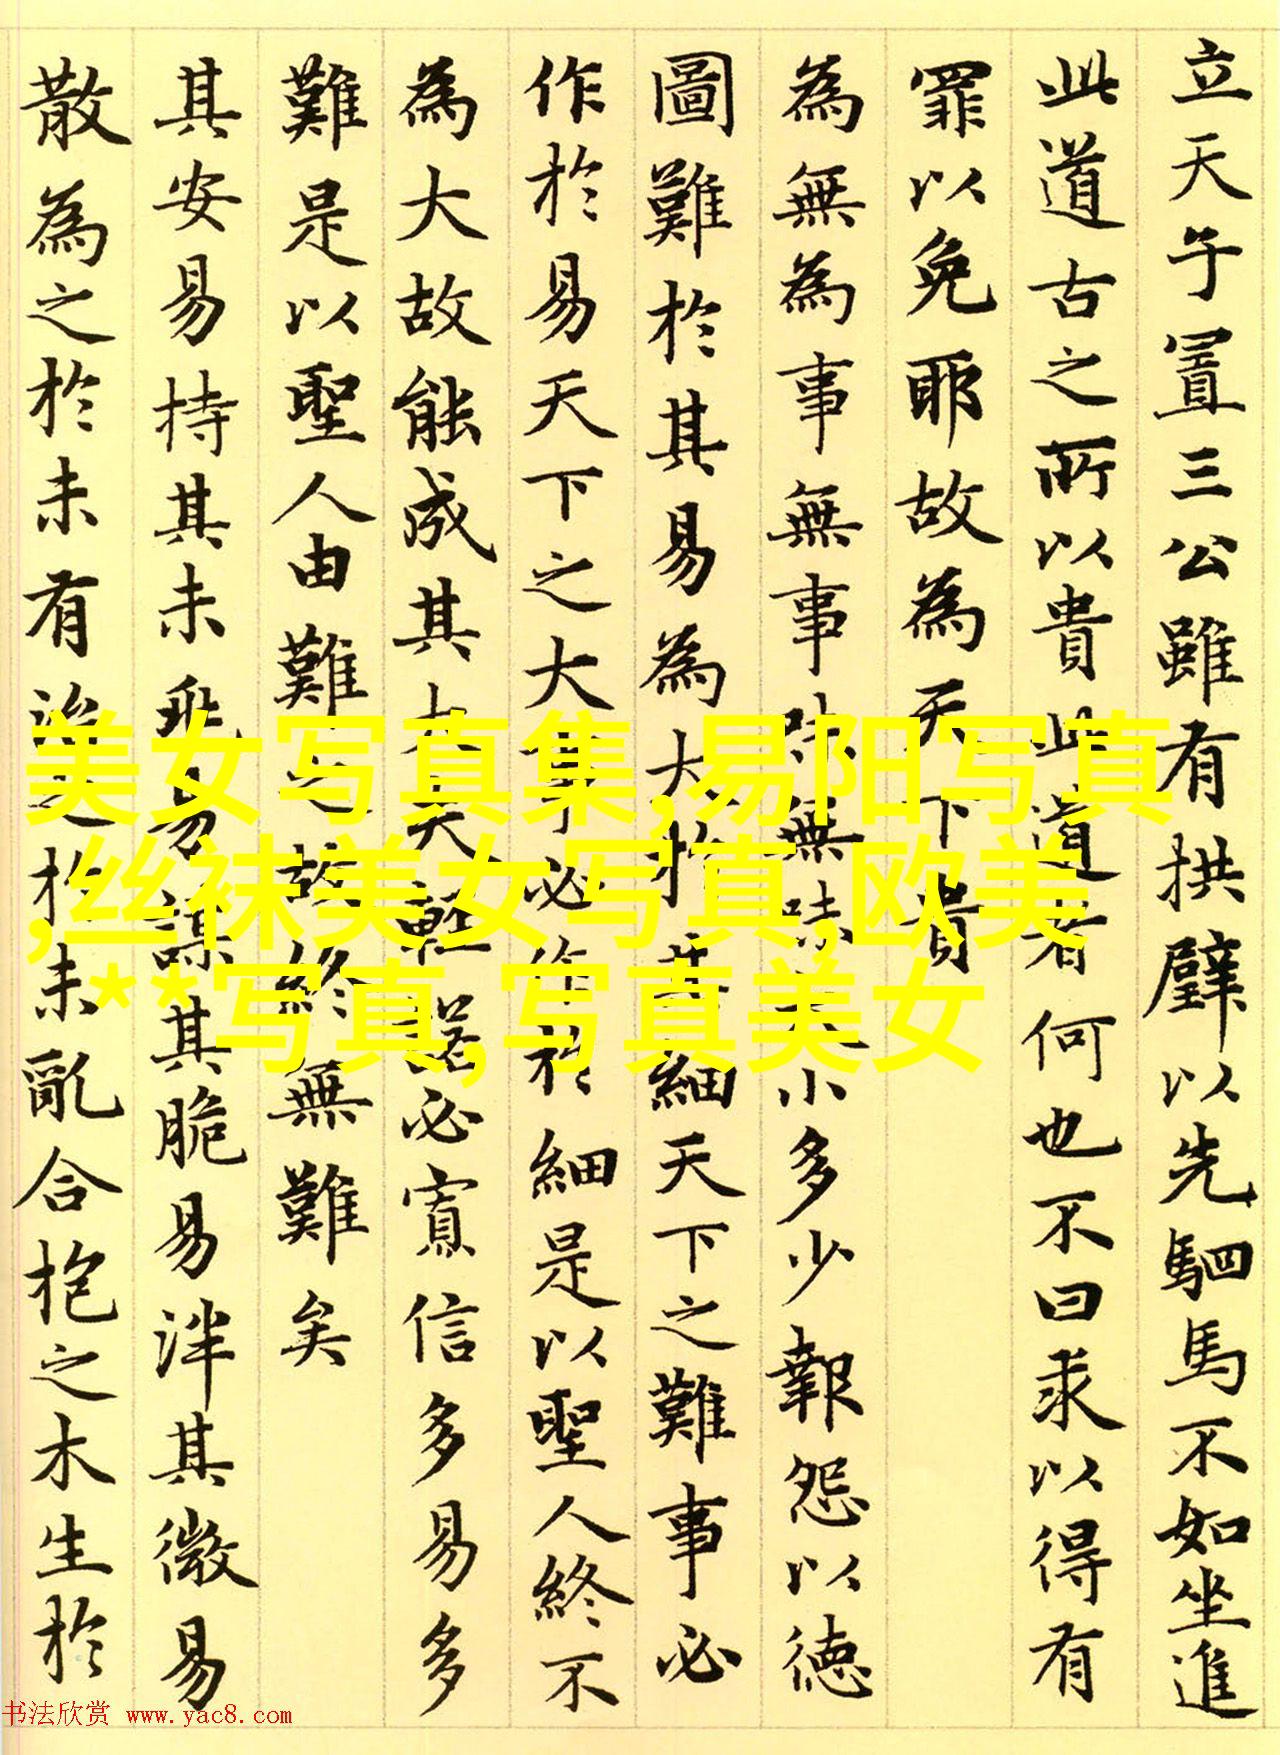 立天子置三公雖有拱璧以先駟馬不如坐進
此道古之所以貴此道者何也不曰求以得有
罪以免耶故為天下貴
為無為事無事味無味大小多少報怨以德
圖難於其易為大於其細天下之難事必
作於易天下之大事必作於細是以聖人終不
為大故能成其大夫輕諾必寡信多易多
難是以聖人由難之故終無難矣
其安易持其未兆易謀其脆易泮其微易
散為之於未有治之於未亂合抱之木生於
美女写真集,易阳写真
,丝袜美女写真,欧美
,**写真,写真美女
书法欣赏 www.yac8.com